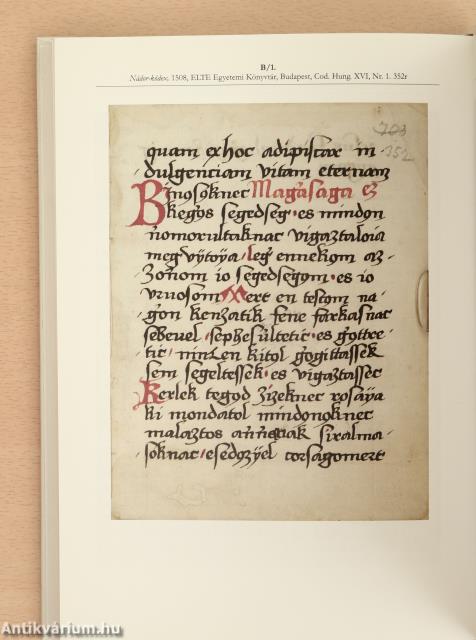 B/1.
Nádor-kódex, 1508, ELTE Egyetemi Könyvtár, Budapest, Cod. Hung. XVI, Nr. 1. 352r
703
352
quam ex hoc adipiscar in-
dulgenciam vitam eternam
Bínósóknec Magassaga ez
kegÿs segedseg es mindon
ńomorultaknac vigaztaloia
meg vÿtoÿa leg ennekom az-
zońom io segedsegom es io
vruosom Mert en testom na-
gon kenzatik fene farkasnac
sebeuel sephesültetic es gottre-
tic nincen kitol gogittassek
sem segeltessek es vigaztassec
Kerlek tegod zizeknec rosaÿa
ki mondatol mindonoknec
malaztos ańńanak siralma-
soknac esedozÿel corsagomert
Antikvárium.hu